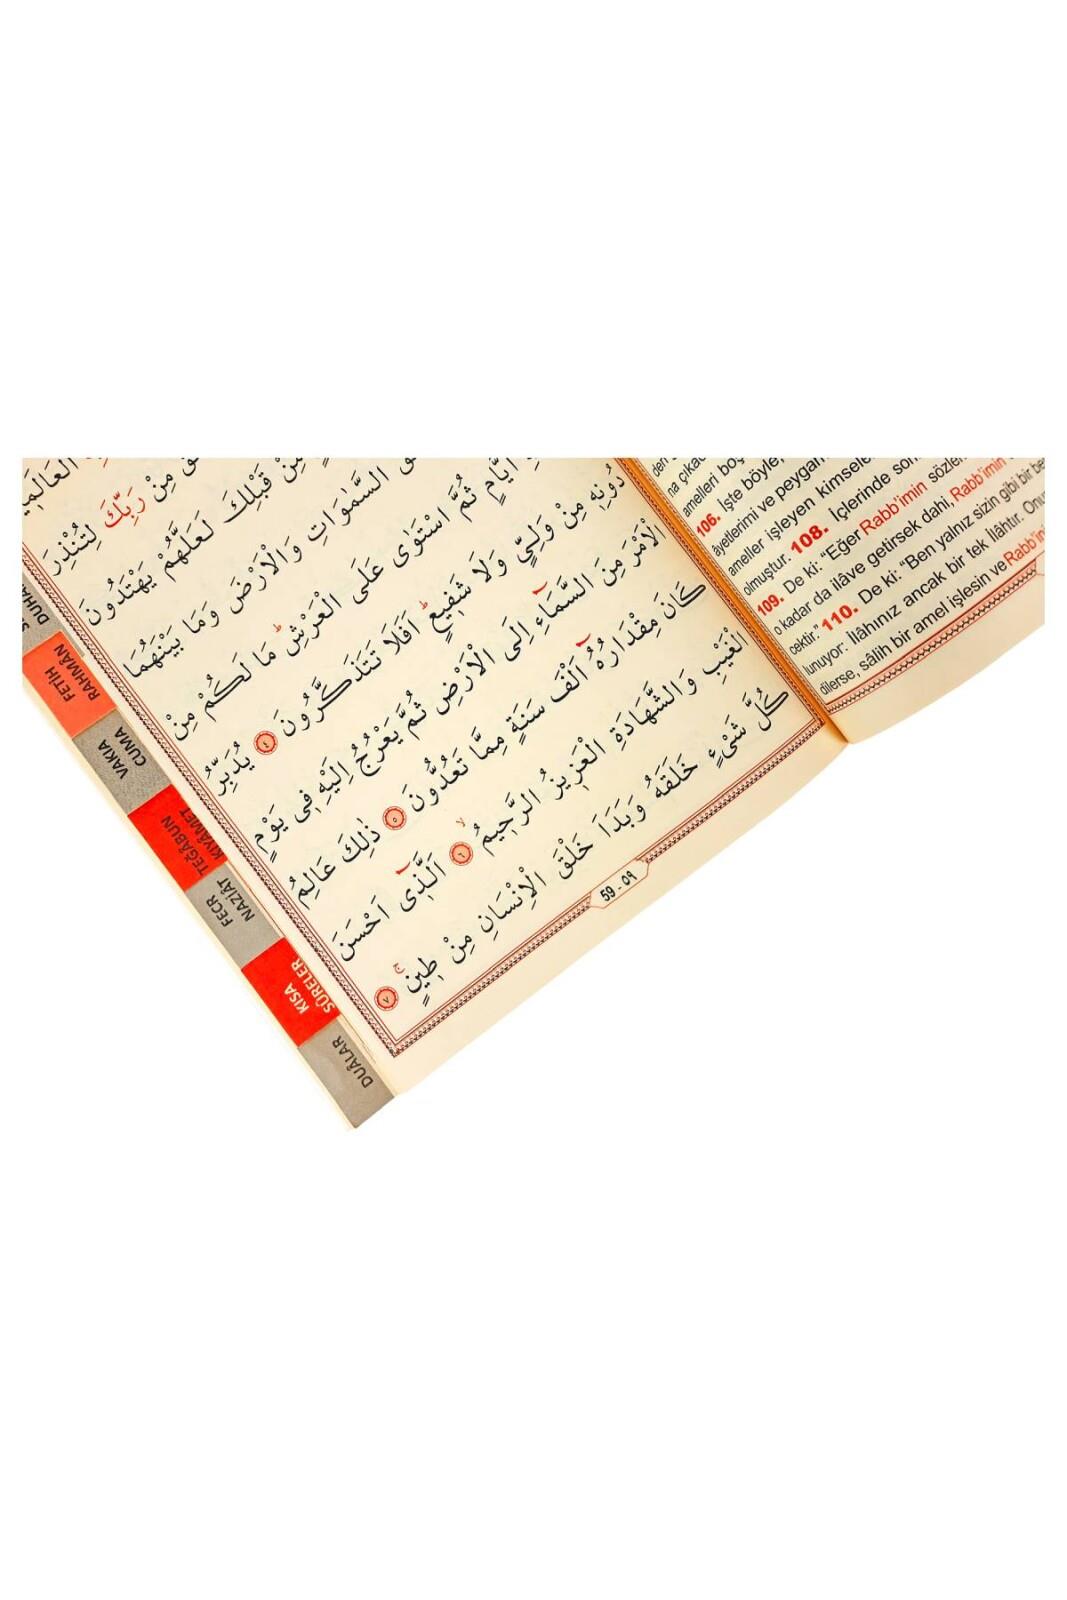 الْعَالَمٖينَ
مِنْ رَبِّكَ لِتُنْذِرَ
مِنْ قَبْلِكَ لَعَلَّهُمْ يَهْتَدُونَ
السَّمٰوَاتِ وَالْاَرْضَ وَمَا بَيْنَهُمَا
اَيَّامٍ ثُمَّ اسْتَوٰى عَلَى الْعَرْشِؕ مَا لَكُمْ مِنْ
دُونِهٖ مِنْ وَلِيٍّ وَلَا شَفٖيعٍؕ اَفَلَا تَتَذَكَّرُونَ ﴿٤﴾ يُدَبِّرُ
الْاَمْرَ مِنَ السَّمَٓاءِ اِلَى الْاَرْضِ ثُمَّ يَعْرُجُ اِلَيْهِ فٖى يَوْمٍ
كَانَ مِقْدَارُهُٓ اَلْفَ سَنَةٍ مِمَّا تَعُدُّونَ ﴿٥﴾ ذٰلِكَ عَالِمُ
الْغَيْبِ وَالشَّهَادَةِ الْعَزٖيزُ الرَّحٖيمُۙ ﴿٦﴾ اَلَّذٖٓى اَحْسَنَ
كُلَّ شَيْءٍ خَلَقَهُ وَبَدَاَ خَلْقَ الْاِنْسَانِ مِنْ طٖينٍۚ ﴿٧﴾
59 - ٥٩
na çıkac
amelleri boş
106. İşte böyle,
âyetlerimi ve peygam
ameller işleyen kimsele
olmuştur. 108. İçlerinde son
109. De ki: “Eğer Rabb’imin sözler
o kadar da ilâve getirsek dahi, Rabb’imin
cektir.” 110. De ki: “Ben yalnız sizin gibi bir be
lunuyor: İlâhınız ancak bir tek İlâhtır. Onu
dilerse, sâlih bir amel işlesin ve Rabb’in
DUHA
FETİH
RAHMÂN
VAKIA
CUMA
TEĞÂBUN
KIYÂMET
FECR
NAZİÂT
KISA
SÛRELER
DUÂLAR